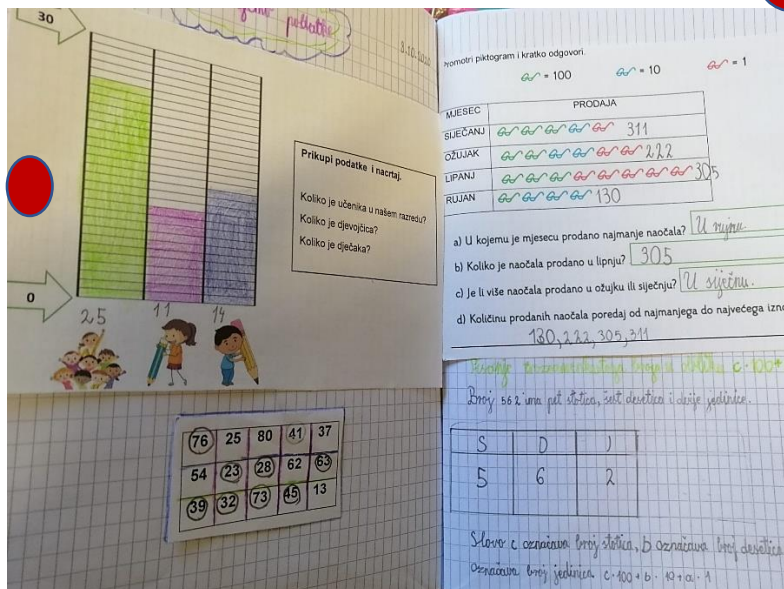 30
podatke
8.10.2020
Prikupi podatke i nacrtaj.
Koliko je učenika u našem razredu?
Koliko je djevojčica?
Koliko je dječaka?
0
25 11 14
76 25 80 41 37
54 23 28 62 63
39 32 73 45 13
Promotri piktogram i kratko odgovori.
= 100 = 10 = 1
MJESEC PRODAJA
SIJEČANJ 311
OŽUJAK 222
LIPANJ 305
RUJAN 130
a) U kojemu je mjesecu prodano najmanje naočala? U rujnu
b) Koliko je naočala prodano u lipnju? 305
c) Je li više naočala prodano u ožujku ili siječnju? U siječnu.
d) Količinu prodanih naočala poredaj od najmanjega do najvećega
130, 222, 305, 311
Pisanje troznamenkastoga broja u obliku c·100+
Broj 562 ima pet stotica, šest desetica i dvije jedinice.
S D J
5 6 2
Slovo c označava broj stotica, b označava broj desetica
označava broj jedinica. c·100+b·10+a·1